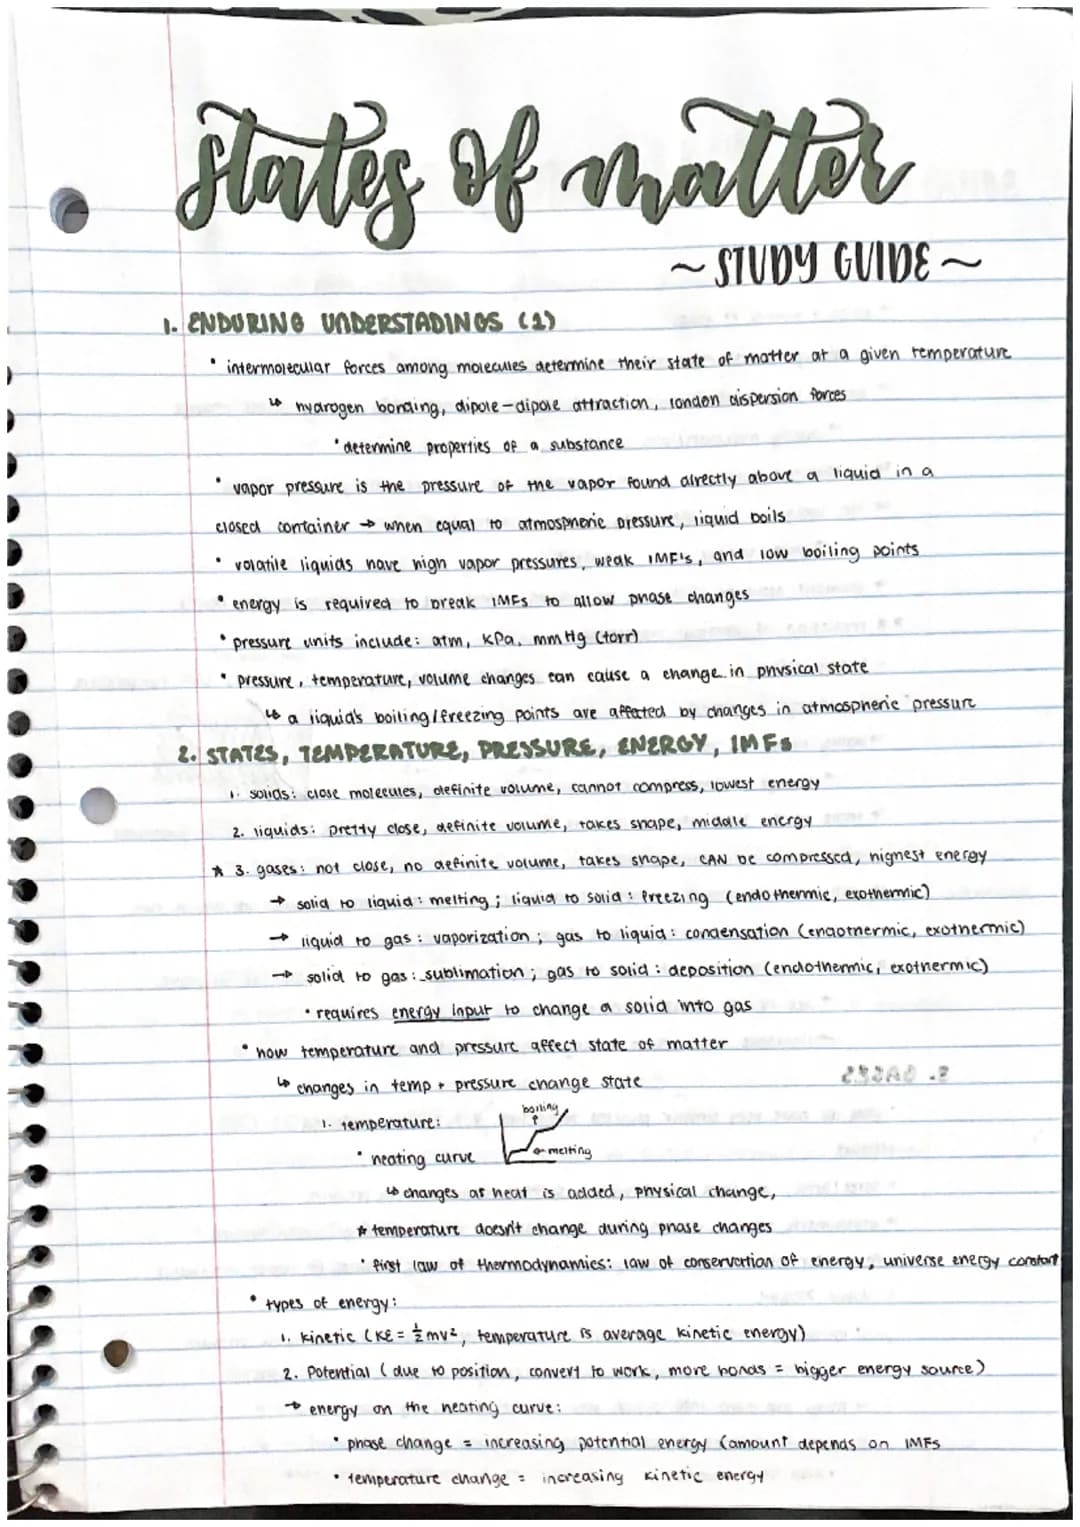 states of matter
~ STUDY GUIDE ~
1. ENDURING UNDERSTADINGS (1)
• intermolecular forces among molecules determine their state of matter at a given temperature
↳ hydrogen bonding, dipole-dipole attraction, london dispersion forces
• determine properties of a substance
• vapor pressure is the pressure of the vapor found directly above a liquid in a
closed container → when equal to atmospheric pressure, liquid boils
• volatile liquids have high vapor pressures, weak IMF's, and low boiling points
• energy is required to break IMFs to allow phase changes
• pressure units include: atm, kPa, mmHg (torr)
• pressure, temperature, volume changes can cause a change in physical state
↳ a liquid's boiling/freezing points are affected by changes in atmospheric pressure
2. STATES, TEMPERATURE, PRESSURE, ENERGY, IMFs
1. solids: close molecules, definite volume, cannot compress, lowest energy
2. liquids: pretty close, definite volume, takes shape, middle energy
☆ 3. gases: not close, no definite volume, takes shape, CAN be compressed, highest energy
→ solid to liquid: melting; liquid to solid: freezing (endothermic, exothermic)
→ liquid to gas: vaporization; gas to liquid: condensation (endothermic, exothermic)
→ solid to gas: sublimation; gas to solid: deposition (endothermic, exothermic)
• requires energy input to change a solid into gas
• how temperature and pressure affect state of matter
↳ changes in temp + pressure change state
boiling
1. temperature:
melting
• heating curve
↳ changes as heat is added, physical change,
☆ temperature doesn't change during phase changes
• first law of thermodynamics: law of conservation of energy, universe energy constant
• types of energy:
1. kinetic (KE = ½mv², temperature is average kinetic energy)
2. Potential (due to position, convert to work, more bonds = bigger energy source)
→ energy on the heating curve:
• phase change = increasing potential energy (amount depends on IMFs
• temperature change = increasing kinetic energy